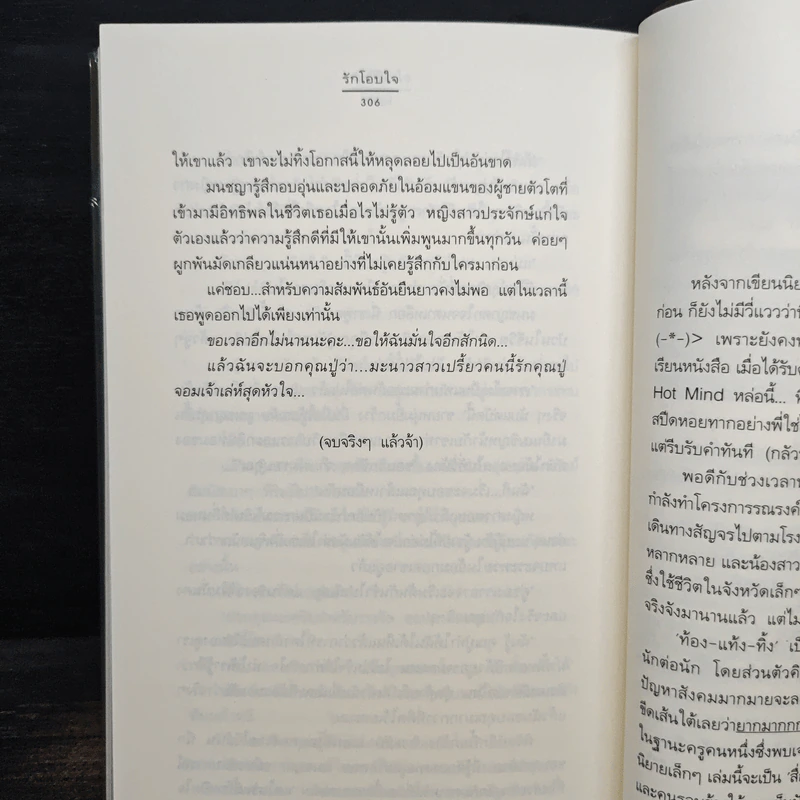 รักโอบใจ
306
ให้เขาแล้ว เขาจะไม่ทิ้งโอกาสนี้ให้หลุดลอยไปเป็นอันขาด
มนชญารู้สึกอบอุ่นและปลอดภัยในอ้อมแขนของผู้ชายตัวโตที่
เข้ามามีอิทธิพลในชีวิตเธอเมื่อไรไม่รู้ตัว หญิงสาวประจักษ์แก่ใจ
ตัวเองแล้วว่าความรู้สึกดีที่มีให้เขานั้นเพิ่มพูนมากขึ้นทุกวัน ค่อยๆ
ผูกพันมัดเกลียวแน่นหนาอย่างที่ไม่เคยรู้สึกกับใครมาก่อน
แค่ชอบ...สำหรับความสัมพันธ์อันยืนยาวคงไม่พอ แต่ในเวลานี้
เธอพูดออกไปได้เพียงเท่านั้น
ขอเวลาอีกไม่นานนะคะ...ขอให้ฉันมั่นใจอีกสักนิด...
แล้วฉันจะบอกคุณปู่ว่า...มะนาวสาวเปรี้ยวคนนี้รักคุณปู่
จอมเจ้าเล่ห์สุดหัวใจ...
(จบจริงๆ แล้วจ้า)
หลังจากเขียนนิย
ก่อน ก็ยังไม่มีวี่แววว่า
(-*-)> เพราะยังคง
เรียนหนังสือ เมื่อได้รับ
Hot Mind หล่อนี้...
สปีดหอยทากอย่างพี่ใช่
แต่รีบรับคำทันที (กลัว
พอดีกับช่วงเวลา
กำลังทำโครงการรณรงค์
เดินทางสัญจรไปตามโรง
หลากหลาย และน้องสาว
ซึ่งใช้ชีวิตในจังหวัดเล็กๆ
จริงจังมานานแล้ว แต่ไม่
'ท้อง-แท้ง-ทิ้ง' เป็
นักต่อนัก โดยส่วนตัวคิ
ปัญหาสังคมมากมายจะล
ขีดเส้นใต้เลยว่ายากมากกก
ในฐานะครูคนหนึ่งซึ่งพบเจ
นิยายเล็กๆ เล่มนี้จะเป็น 'สื่